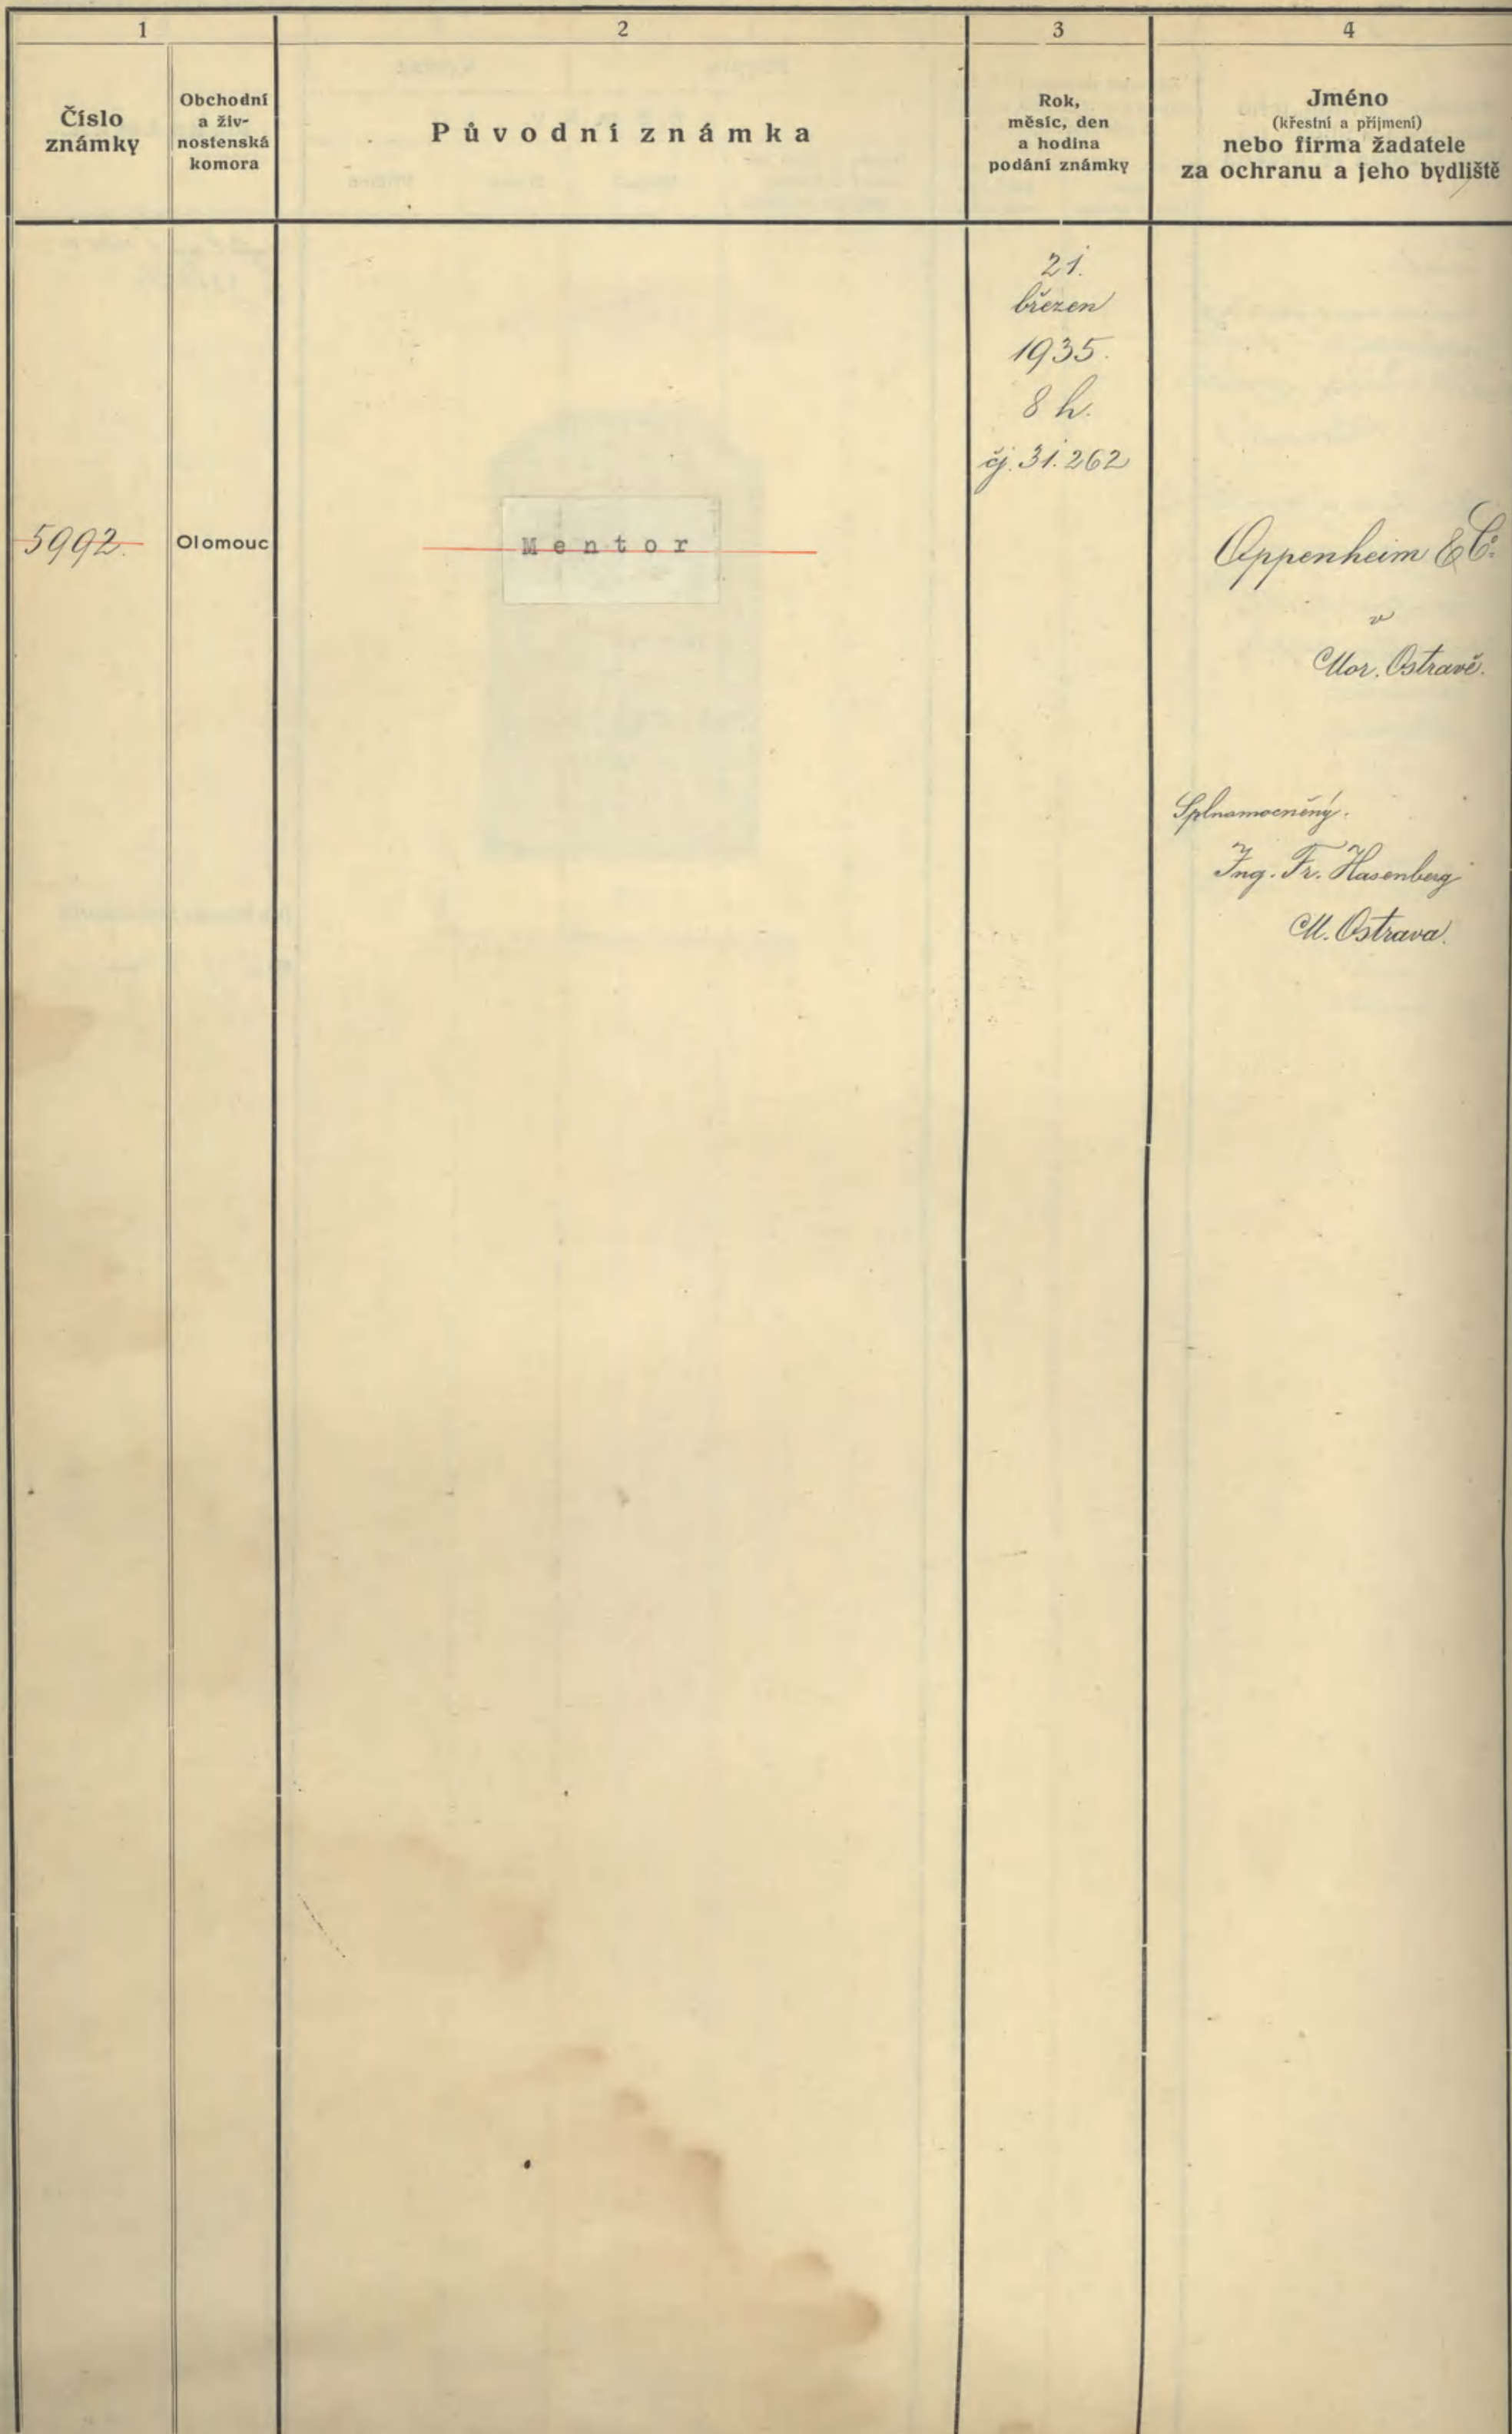 1
2
3
4
Číslo
známky
Obchodní
a živ-
nostenská
komora
Původní známka
Rok,
měsíc, den
a hodina
podání známky
Jméno
(křestní a příjmení)
nebo firma žadatele
za ochranu a jeho bydliště
21.
březen
1935.
8 h.
čj. 31.262
5992.
Olomouc
Mentor
Oppenheim & Co.
v
Mor. Ostravě.
Splnamocněný:
Ing. Fr. Hasenberg
M. Ostrava.